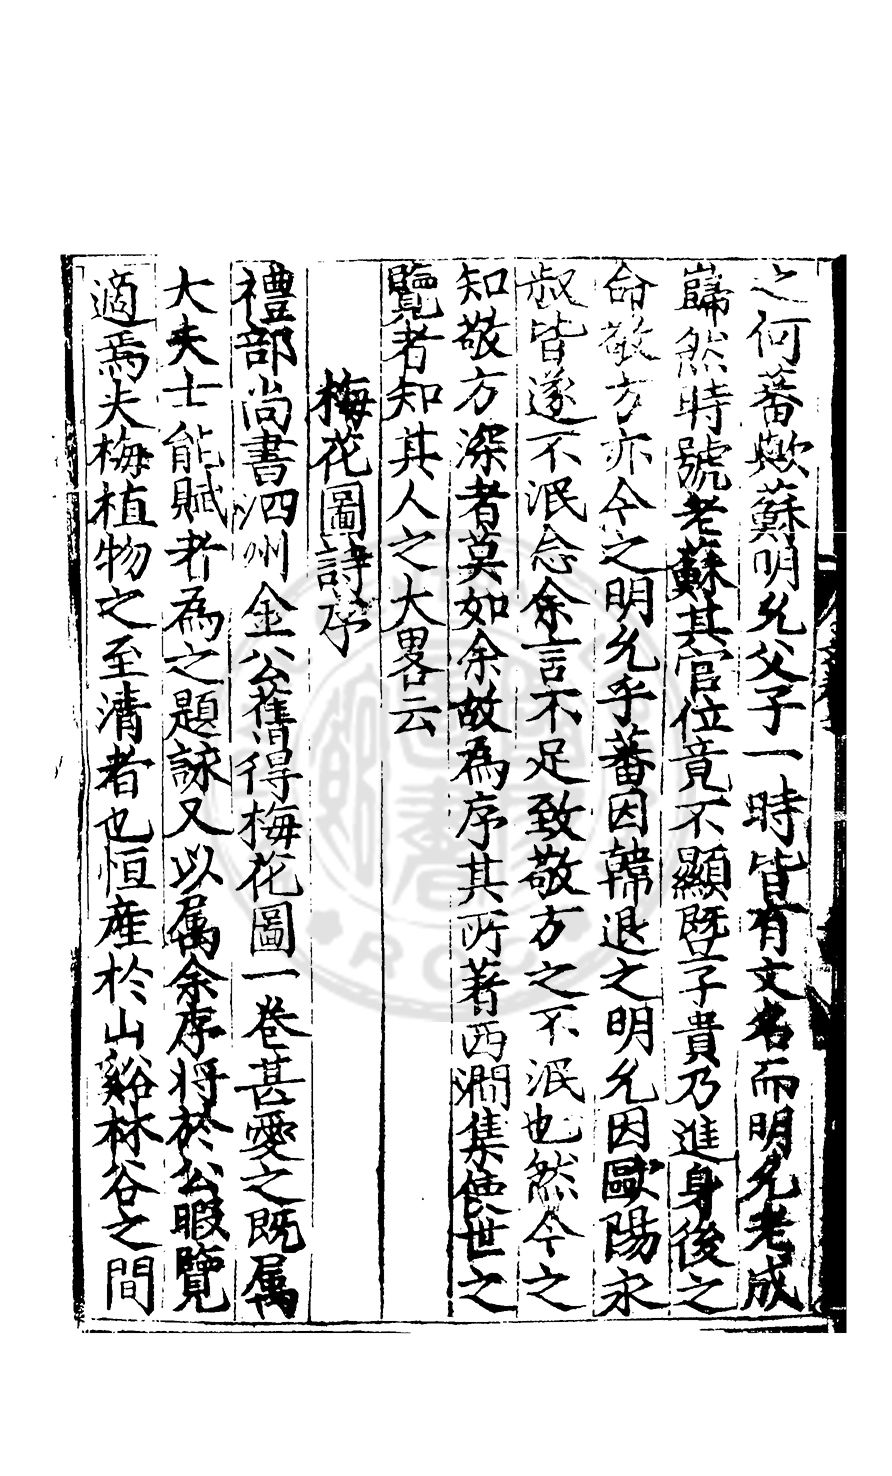 之何蕃歟蘇明允父子一時皆有文名而明允老成
巋然時號老蘇其官位竟不顯暨子貴乃進身後之
命敬方亦今之明允乎蕃因韓退之明允因歐陽永
叔皆遂不泯念余言不足致敬方之不泯也然今之
知敬方深者莫如余故為序其所著西澗集使世之
覽者知其人之大畧云
梅花圖詩序
禮部尚書泗州金公舊得梅花圖一卷甚愛之既属
大夫士能賦者為之題詠又以属余序將於公暇覽
適焉夫梅植物之至清者也恒産於山谿林谷之間